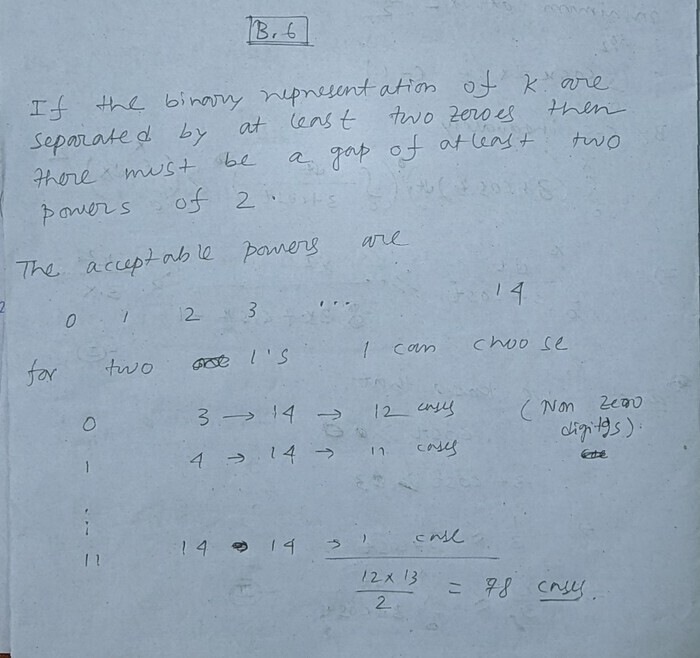 B.6
If the binary representation of k are
separated by at least two zeroes then
there must be a gap of atleast two
powers of 2.
The acceptable powers are
0 1 2 3 ... 14
for two 1's I can choose
0 3 → 14 → 12 cases (Non zero
digitgs).
1 4 → 14 → 11 cases
⋮
11 14 → 14 → 1 case
12 x 13 / 2 = 78 cases.